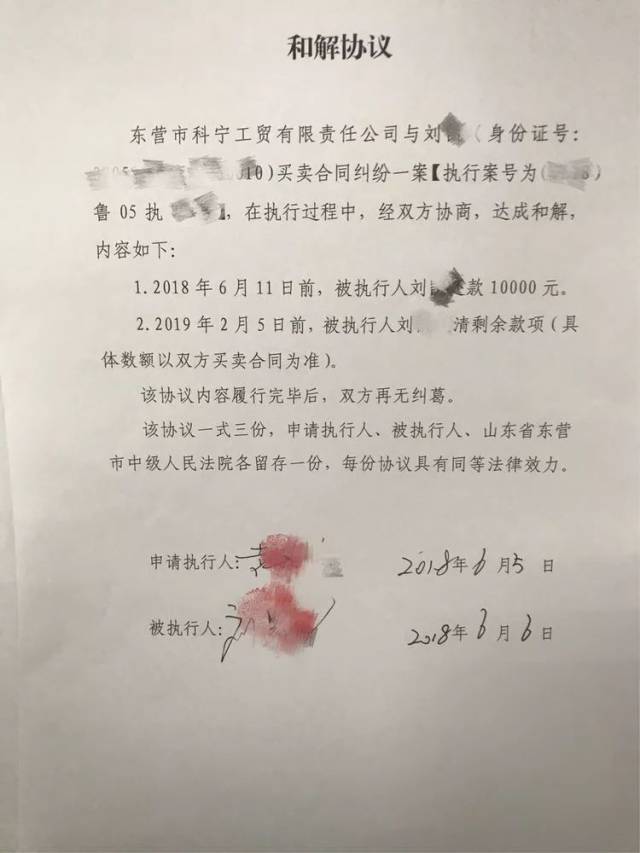 和解协议
东营市科宁工贸有限责任公司与刘（身份证号：
10)买卖合同纠纷一案【执行案号为( ）
鲁 05 执 】，在执行过程中，经双方协商，达成和解，
内容如下：
1.2018 年 6 月 11 日前，被执行人刘 款 10000 元。
2.2019 年 2 月 5 日前，被执行人刘 清剩余款项（具
体数额以双方买卖合同为准）。
该协议内容履行完毕后，双方再无纠葛。
该协议一式三份，申请执行人、被执行人、山东省东营
市中级人民法院各留存一份，每份协议具有同等法律效力。
申请执行人： 2018年 6 月 5 日
被执行人： 2018年 6 月 6 日